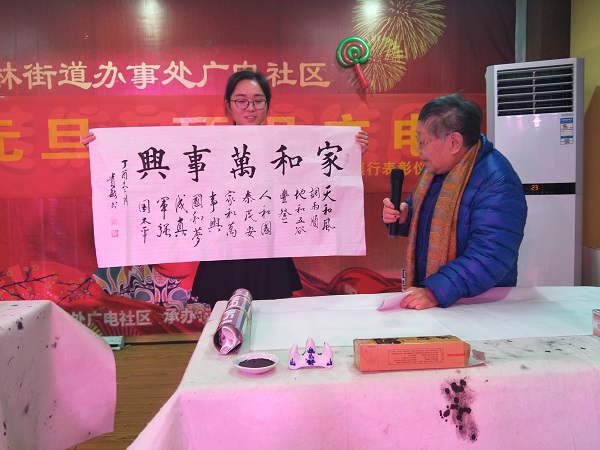 林街道办事处广电社区
元旦
行表彰仪
家和萬事興
天和風
調雨順
地和五
豐登
人和國
泰民安
家和萬
事興
國和夢
成真
軍強
國太平
丁酉冬月
处广电社区 承办:
23